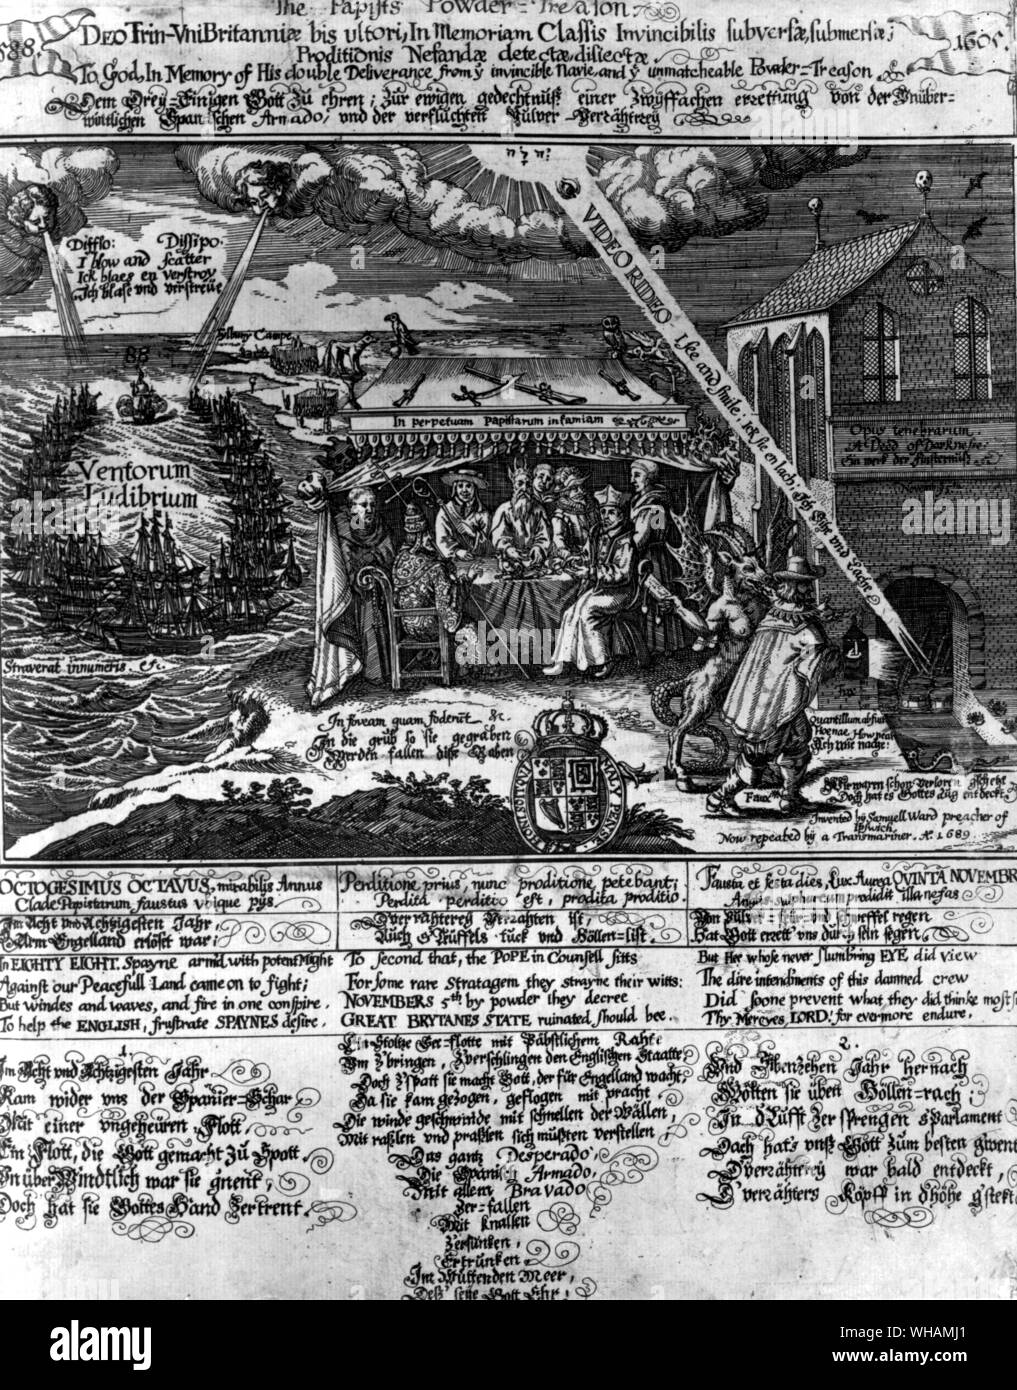 The Papists Powder=Treason.
588.
DEO Trin-Vni Britanniæ bis ultori, In Memoriam Classis Invincibilis subversæ, submersæ;
Proditionis Nefandæ detectæ, disiectæ.
1605.
To God, In Memory of His double Deliverance from yͤ invincible Navie, and yͤ unmatcheable Powder=Treason
Dem Drey=Einigen Gott zu ehren; zur ewigen gedechtnüß einer zwyffachen errettung von der Unüber=
windtlichen Spanischen Armado, und der verfluchten Pulver=Verrähtrey
יהוה
Difflo: Dissipo.
I blow and scatter
Ick blaes en verstroy
Ich blase und verstreue
VIDEO RIDEO I see and smile; ick sie en lach; Ich sihe und Lache
88
Tilbury Campe
In perpetuam Papistarum infamiam
Opus tenebrarum.
A Deed of Darknesse
Ein werk der finsternüß
Ventorum
Ludibrium
Straverat innumeris. etc.
In foveam quam foderūt &c.
In die grüb so sie gegraben
Werden fallen dise Raben
HONI SOIT QUI MAL Y PENSE
Quantillum abfuit
How near
Ich wie nache!
Faux
Wir waren schon verlorn
Doch hat es Gottes Aug entdeckt
Invented by Samuell Ward preacher of
Ipswich.
Now repeated by a Transmariner. Aͦ. 1689.
OCTOGESIMUS OCTAVUS, mirabilis Annus
Clade Papistarum faustus ubique pijs.
Im Acht und Achtzigesten Jahr
Arm Engelland erlöst war;
In EIGHTY EIGHT, Spayne arm'd with potent Might
Against our Peacefull Land came on to fight;
But windes and waves, and fire in one conspire,
To help the ENGLISH, frustrate SPAYNES desire.
Perditione prius, nunc proditione petebant;
Perdita perditio est, prodita proditio.
Verrähterey Verrahten ist,
Auch d'Tüffels tück und Höllen=list.
To second that, the POPE in Counsell sitts
For some rare Stratagem they strayne their witts:
NOVEMBERS 5th by powder they decree
GREAT BRYTANES STATE ruinated should bee.
Fausta et festa dies, Lux Aurea QVINTA NOVEMBR
sulphureum prodidit illa nefas
Von Pulver= feür= und schweffel regen
Hat Gott errett uns durch sein segen.
But Hee whose never slumbring EYE did view
The dire intendments of this damned crew
Did soone prevent what they did thinke most s
Thy Mercyes, LORD! for evermore endure.
1.
Im Acht und Achtzigesten Jahr
Kam wider uns der Spanier=Schar
Mit einer ungeheüren Flott,
Ein Flott, die Gott gemacht zu Spott.
Unüberwindtlich war sie g'nent,
Doch hat sie Gottes Hand zertrent.
Ein Stoltze See=flotte mit Päbstlichem Rahte
Um z'bringen, z'verschlingen den Englischen Staatte;
Doch z'spatt sie macht Gott, der für Engelland wacht;
Da sie kam gezogen, geflogen mit pracht,
Die winde geschwinde mit schnellen der Wällen,
Mit raßlen und praßlen sich müßten verstellen;
Das gantz Desperado,
Die Spanisch Armado,
Mitt allem Bravado
Zer=fallen
Mit knallen
Zersunken,
Ertrunken
Im Wüttenden Meer,
Deß seye Gott Ehr,
2.
Und Sibenzehen Jahr hernach
Wolten sie üben Höllen=rach;
In d'Lufft zersprengen s'Parlament
Doch hat's unß Gott zum besten gwent
D'verrähtrey war bald entdeckt,
D'verrähters Köpff in d'höhe g'stekt
alamy
alamy
Image ID: WHAMJ1
www.alamy.com